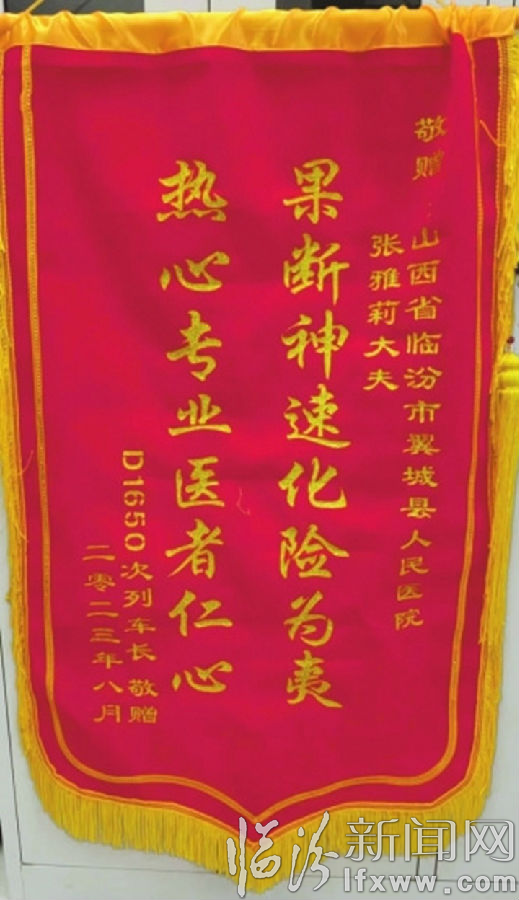 敬赠:山西省临汾市翼城县人民医院
张雅莉大夫
果断神速化险为夷
热心专业医者仁心
D1650次列车长 敬赠
二零二三年八月
临汾新闻网
lfxww.com